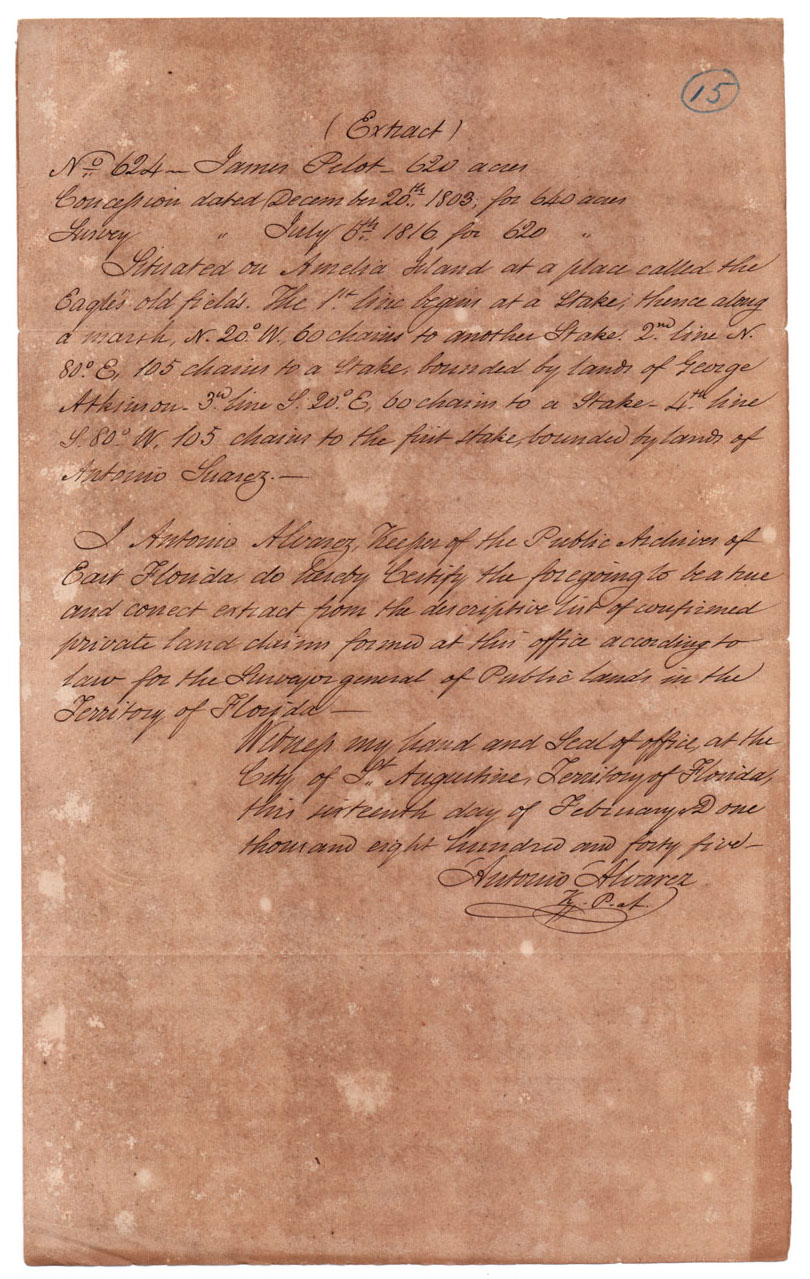 15
(Extract)
No 624 — James Pelot — 620 acres
Concession dated December 20th 1803, for 640 acres
Survey " July 5th 1816 for 620 "
Situated on Amelia Island at a place called the
Eagle's old fields. The 1st line begins at a Stake; thence along
a marsh, N. 20° W, 60 chains to another Stake. 2nd line N.
80° E, 105 chains to a Stake, bounded by lands of George
Atkinson — 3rd line S. 20° E, 60 chains to a Stake — 4th line
S. 80° W. 105 chains to the first stake, bounded by lands of
Antonio Suarez. —
I Antonio Alvarez, Keeper of the Public Archives of
East Florida do hereby Certify the foregoing to be a true
and correct extract from the descriptive list of confirmed
private land claims formed at this office according to
law for the Surveyor general of Public lands in the
Territory of Florida —
Witness my hand and Seal of office, at the
City of St Augustine, Territory of Florida,
this sixteenth day of February AD one
thousand eight hundred and forty five —
Antonio Alvarez
K. P. a.